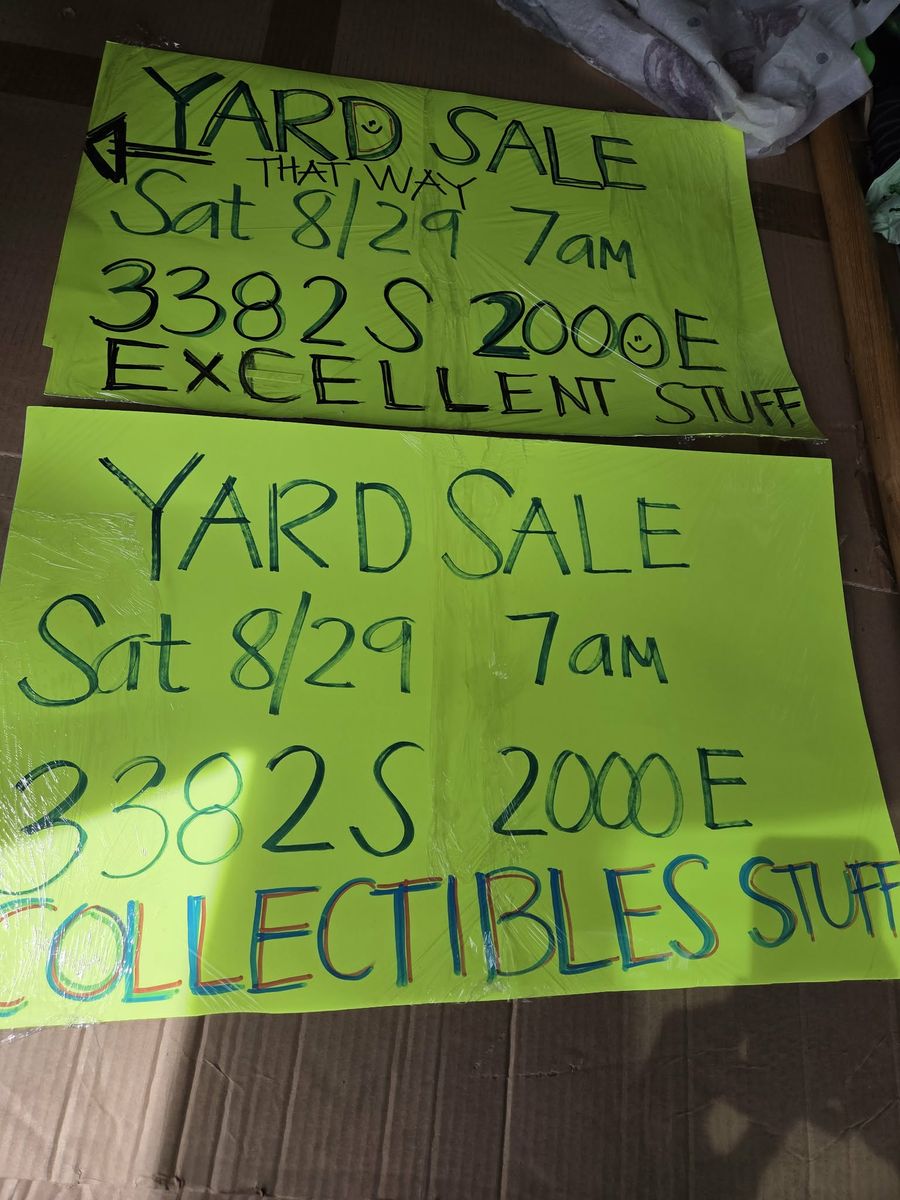 YARD SALE
THAT WAY
Sat 8/29 7am
3382 S 2000 E
EXCELLENT STUFF
YARD SALE
Sat 8/29 7am
3382 S 2000 E
COLLECTIBLES STUFF